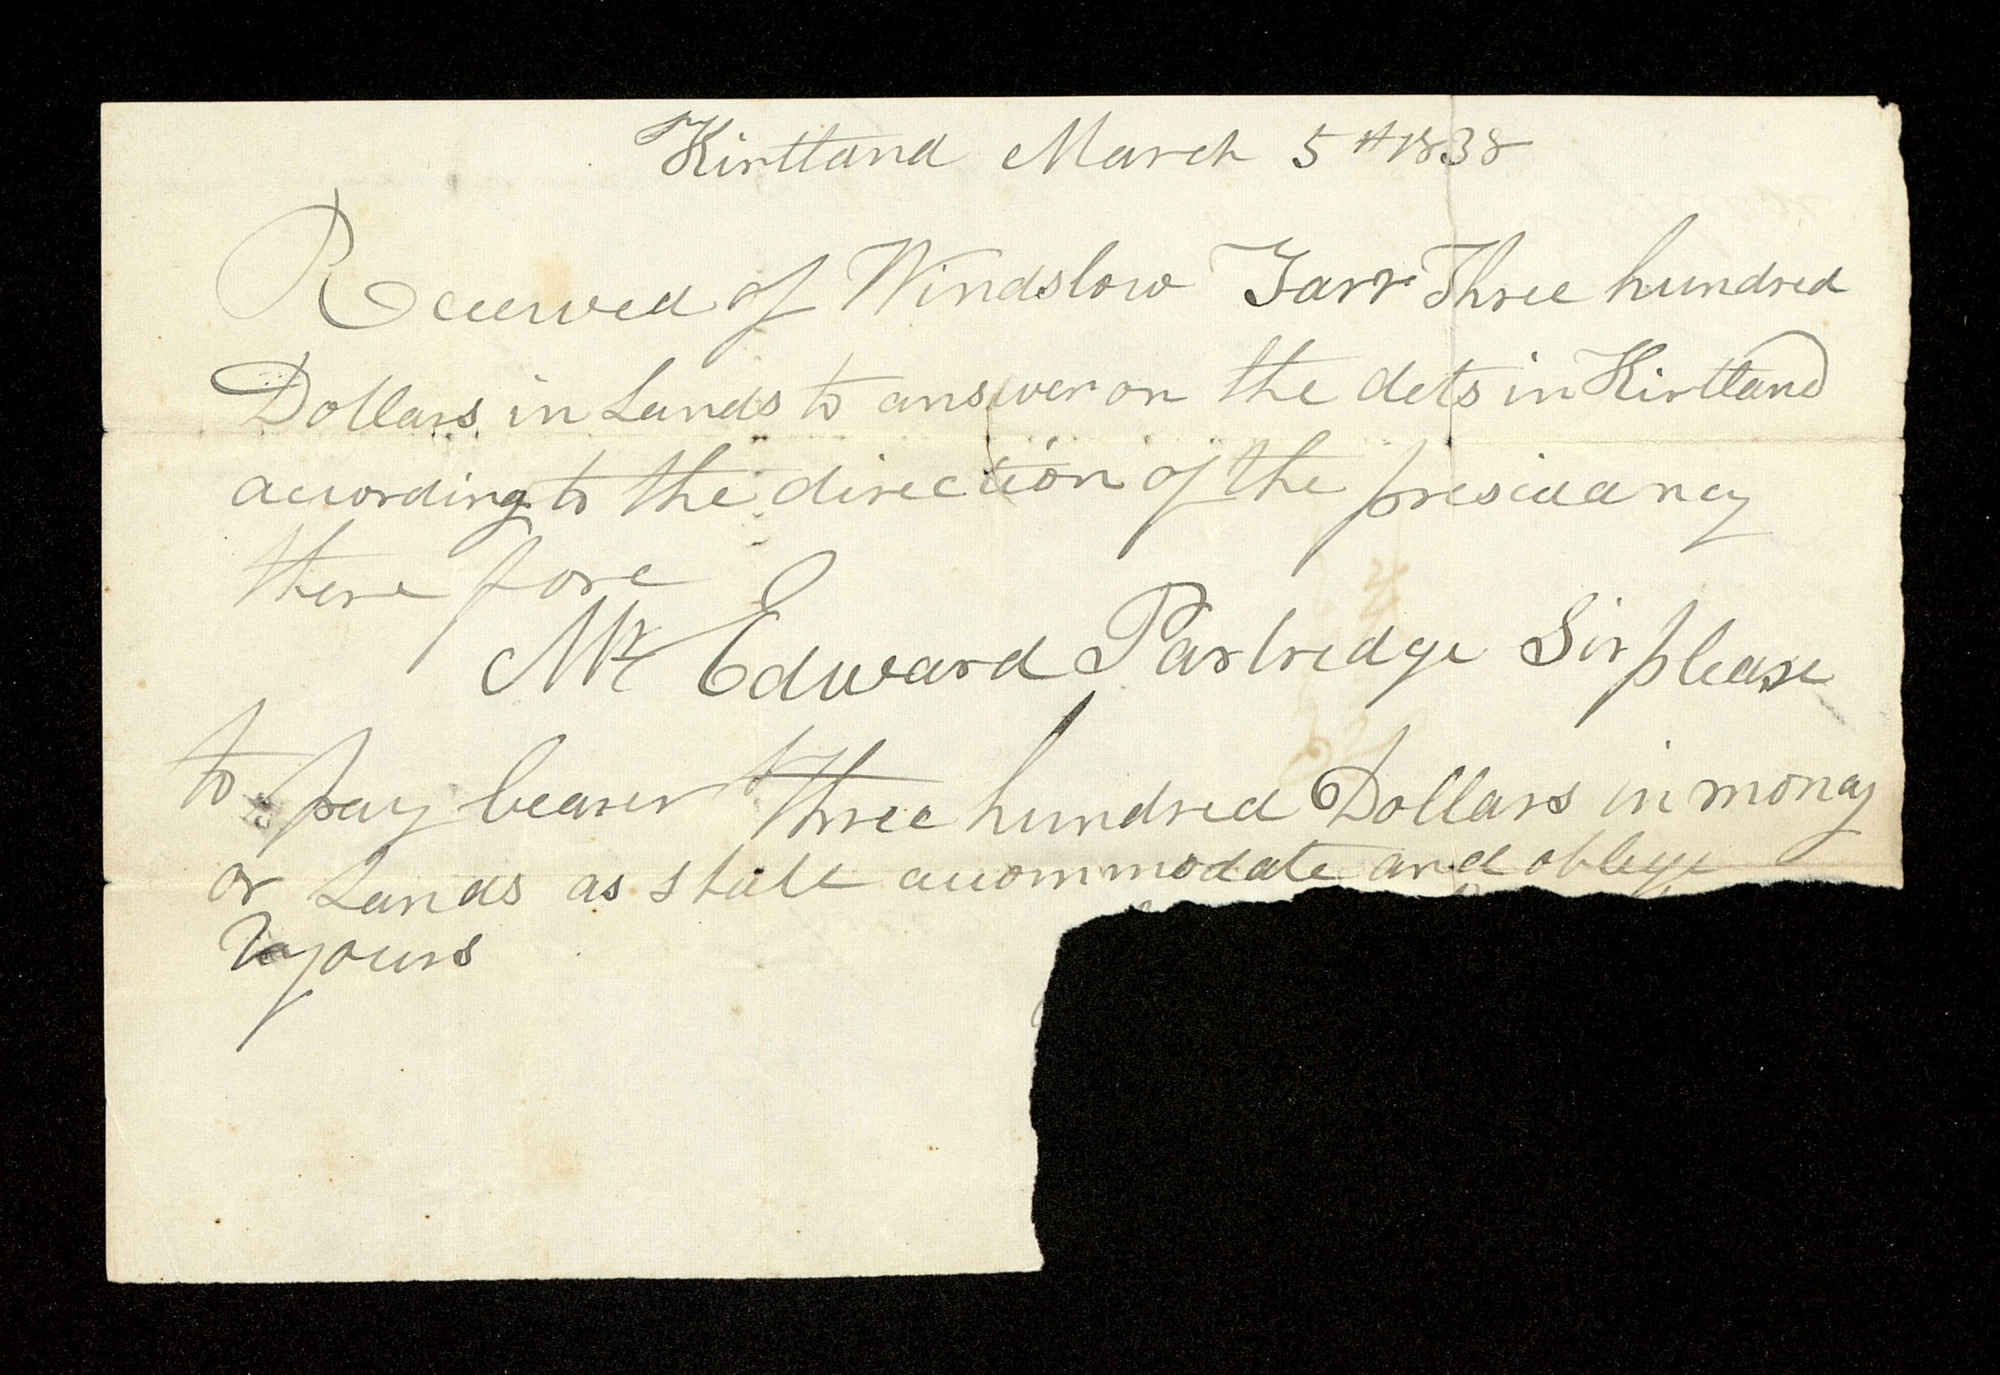 Kirtland March 5th 1838
Received of Windslow Farr Three hundred
Dollars in Lands to answer on the dets in Kirtland
acording to the direction of the presidancy
there fore
Mr Edward Partredge Sir please
to pay bearer three hundred Dollars in mony
or Lands as shall acommodate and oblege
yours